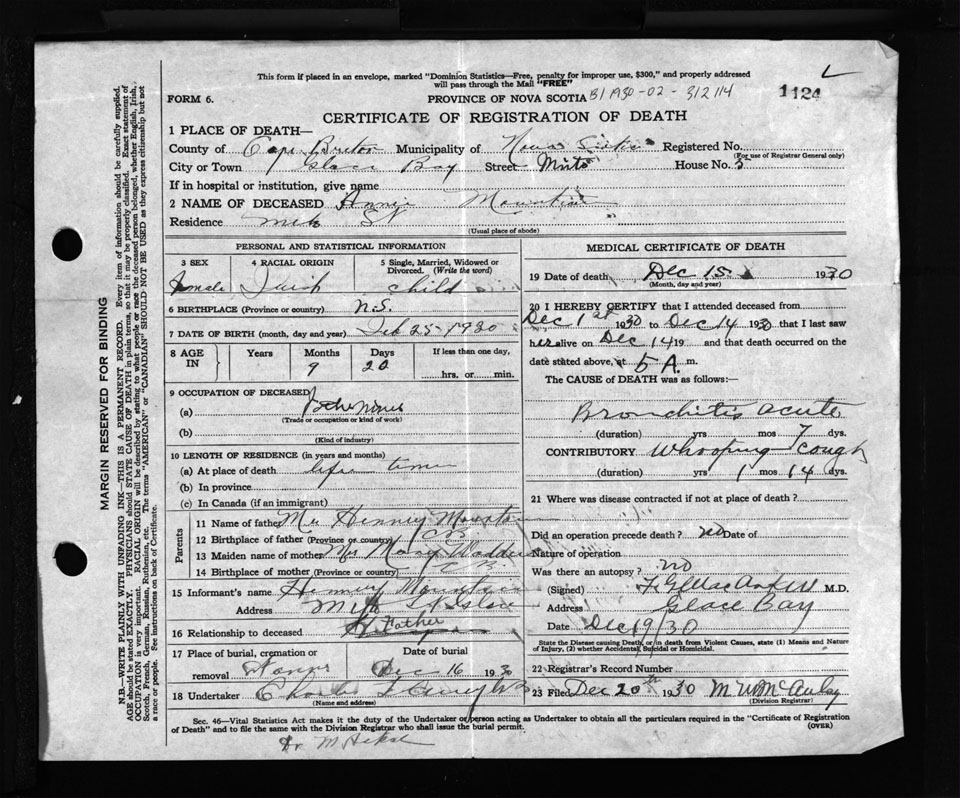 This form if placed in an envelope, marked "Dominion Statistics—Free, penalty for improper use, $300," and properly addressed
will pass through the Mail "FREE"
FORM 6.
PROVINCE OF NOVA SCOTIA B1 1930-02-312114
1124
CERTIFICATE OF REGISTRATION OF DEATH
1 PLACE OF DEATH—
County of Cape Breton Municipality of Registered No.
(For use of Registrar General only)
City or Town Glace Bay Street House No. 5
If in hospital or institution, give name
2 NAME OF DECEASED Annie
Residence St
(Usual place of abode)
PERSONAL AND STATISTICAL INFORMATION
3 SEX 4 RACIAL ORIGIN 5 Single, Married, Widowed or Divorced. (Write the word)
Female child
6 BIRTHPLACE (Province or country) N.S.
7 DATE OF BIRTH (month, day and year) Feb 25-1920
8 AGE IN Years Months Days If less than one day,
9 20 hrs. or min.
9 OCCUPATION OF DECEASED
(a)
(Trade or occupation or kind of work)
(b)
(Kind of industry)
10 LENGTH OF RESIDENCE (in years and months)
(a) At place of death life time
(b) In province
(c) In Canada (if an immigrant)
Parents
11 Name of father Mr Henney
12 Birthplace of father (Province or country) CB
13 Maiden name of mother Mrs Mary
14 Birthplace of mother (Province or country) C B
15 Informant's name Henney
Address
16 Relationship to deceased Father
17 Place of burial, cremation or removal Date of burial
Dec 16 1930
18 Undertaker Charles
(Name and address)
MEDICAL CERTIFICATE OF DEATH
19 Date of death Dec 15 1930
(Month, day and year)
20 I HEREBY CERTIFY that I attended deceased from
Dec 1st 1930 to Dec 14 1930 that I last saw
her alive on Dec 14 19 and that death occurred on the
date stated above, at 5 A. m.
The CAUSE of DEATH was as follows:
Bronchitis acute
(duration) yrs mos 7 dys.
CONTRIBUTORY Whooping Cough
(duration) yrs 1 mos 14 dys.
21 Where was disease contracted if not at place of death ?
Did an operation precede death ? no Date of
Nature of operation
Was there an autopsy ? no
(Signed) M.D.
Address Glace Bay
Date Dec 19/30
State the Disease causing Death, or in death from Violent Causes, state (1) Means and Nature
of Injury, (2) whether Accidental, Suicidal or Homicidal.
22 Registrar's Record Number
23 Filed Dec 20th 1930
(Division Registrar)
Sec. 46—Vital Statistics Act makes it the duty of the Undertaker or person acting as Undertaker to obtain all the particulars required in the "Certificate of Registration
of Death" and to file the same with the Division Registrar who shall issue the burial permit.
(OVER)
Dr.
MARGIN RESERVED FOR BINDING
N.B.—WRITE PLAINLY WITH UNFADING INK—THIS IS A PERMANENT RECORD. Every item of information should be carefully supplied.
AGE should be stated EXACTLY. PHYSICIANS should STATE CAUSE OF DEATH in plain terms, so that it may be properly classified. Exact statement of
OCCUPATION is very important. RACIAL ORIGIN will be described by stating to what people or race the deceased person belonged, whether English, Irish,
Scotch, French, German, Russian, Ruthenian, etc. The terms "AMERICAN" or "CANADIAN" SHOULD NOT BE USED as they express citizenship but not
a race or people. See instructions on back of Certificate.